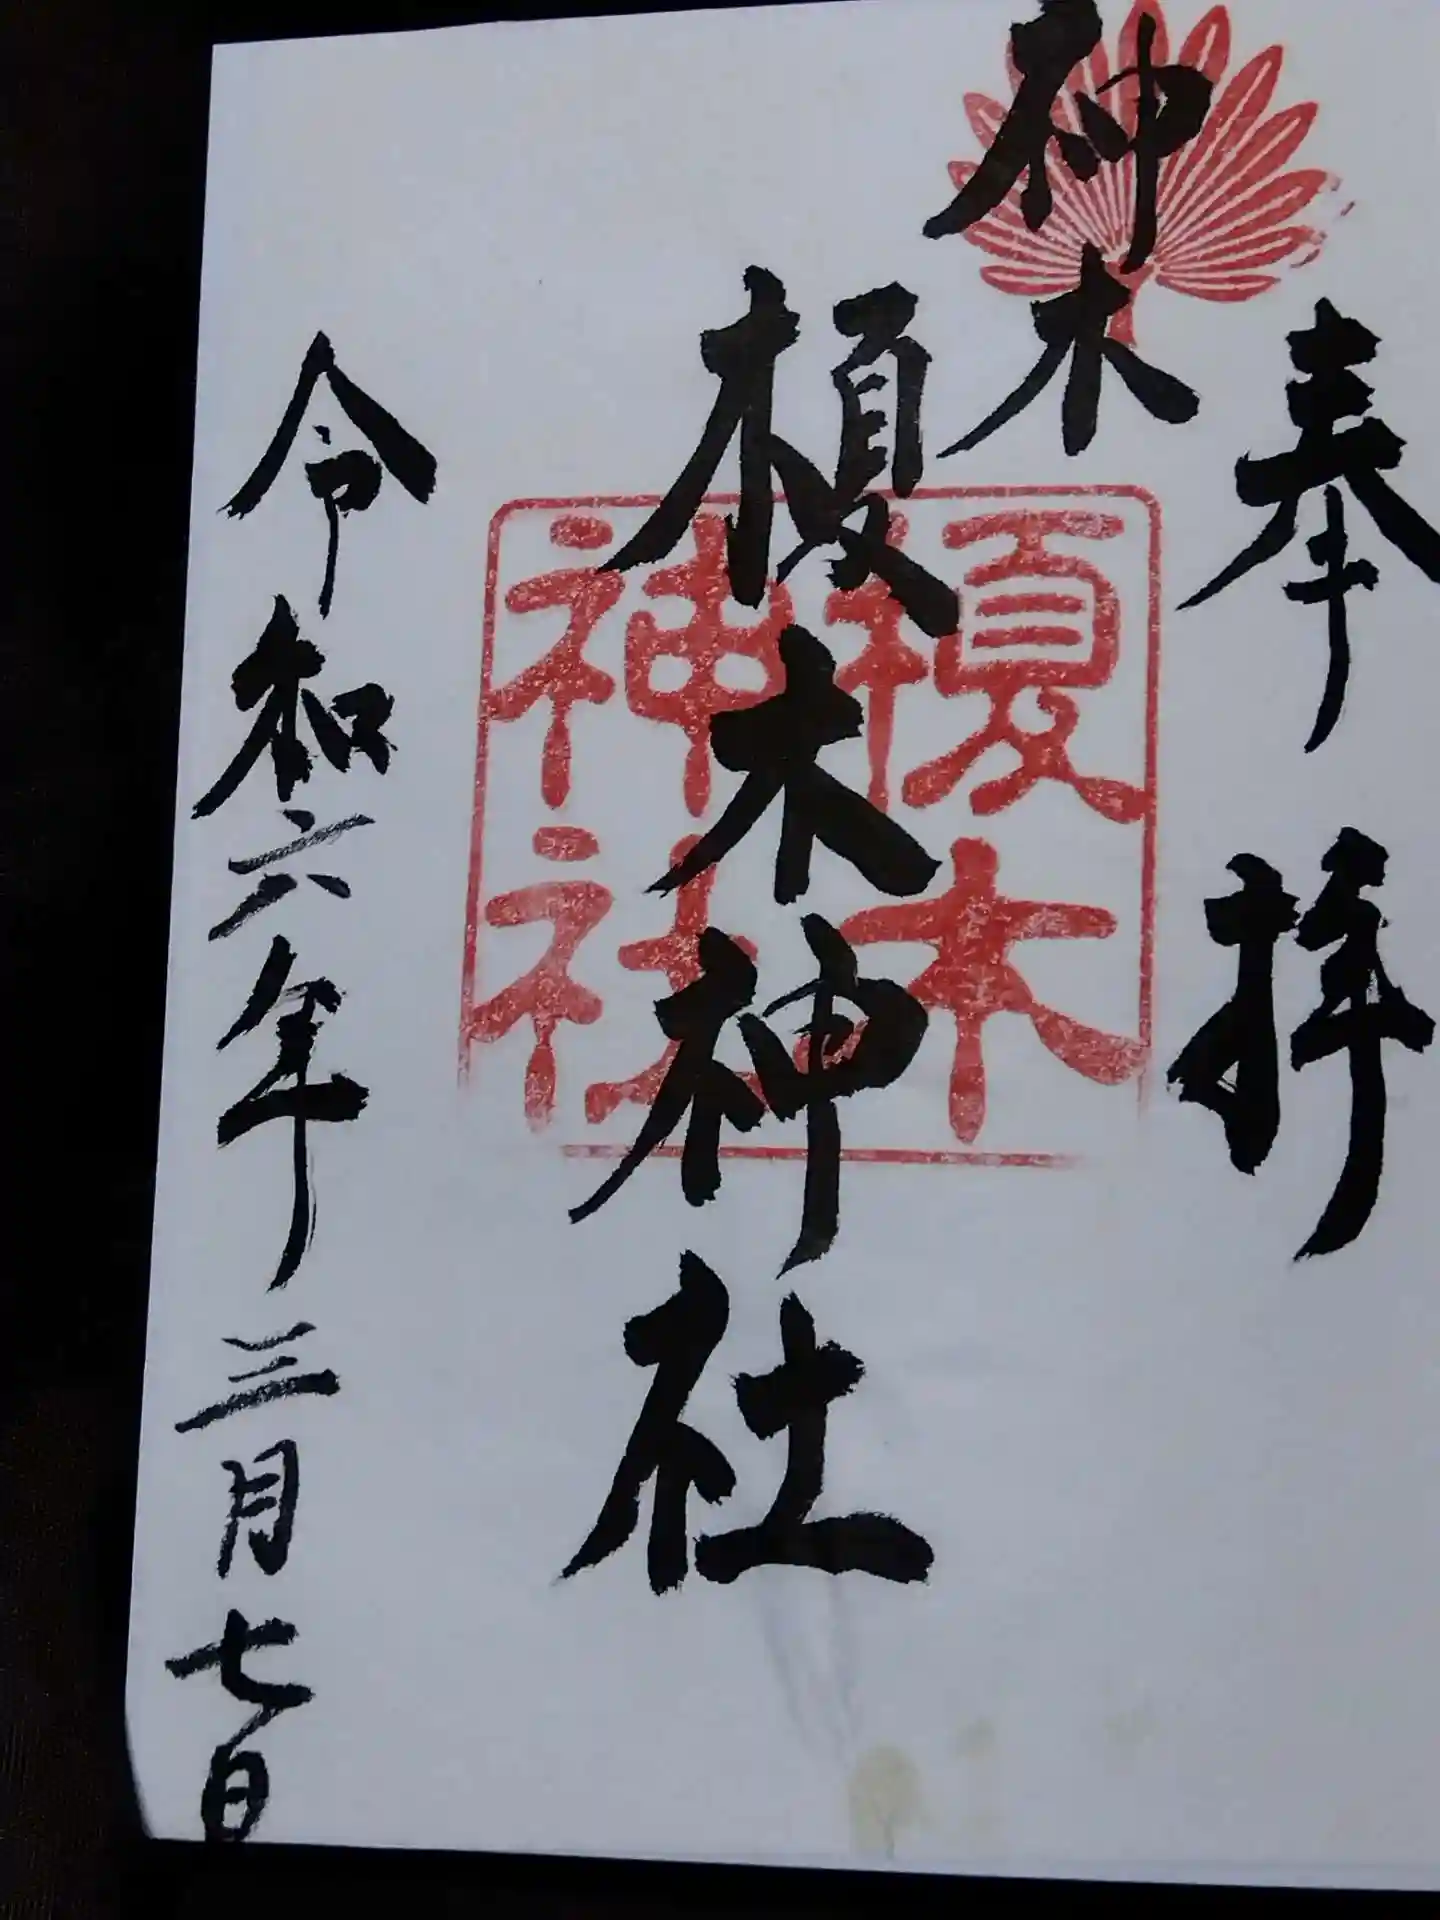 奉拝
神木
榎木神社
榎木
神社
令和六年三月七日